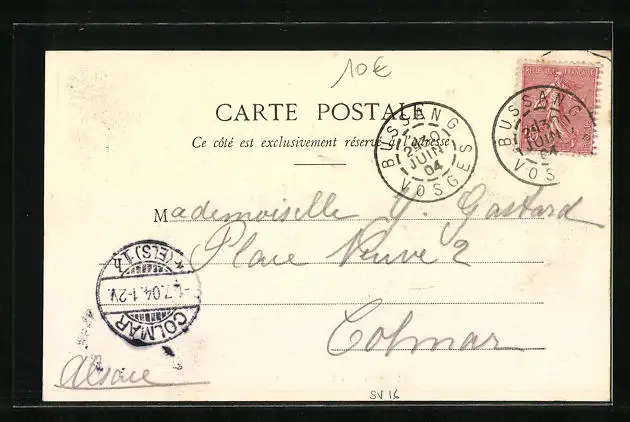 10€
RÉPUBLIQUE FRANÇAISE
CARTE POSTALE
Ce côté est exclusivement réservé à l'adresse
BUSSANG
2E 30
JUIN
04
VOSGES
BUSSANG
2E 30
JUIN
04
VOS
Mademoiselle G. Gastard
Place Neuve 2
Colmar
COLMAR
1.7.04.1-2V.
(ELS) 1
Alsace
SV 16